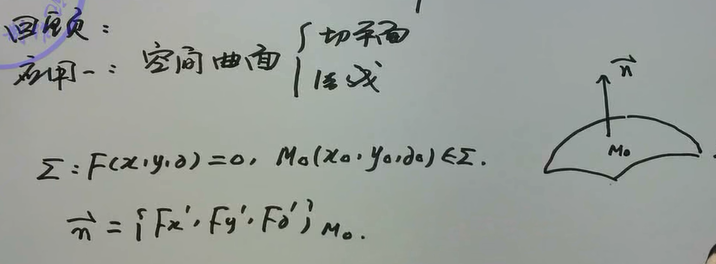 回顾:
应用一: 空间曲面 { 切平面
法线
n⃗
M₀
Σ: F(x,y,z)=0, M₀(x₀,y₀,z₀)∈Σ.
n⃗ = {Fx', Fy', Fz'}M₀.